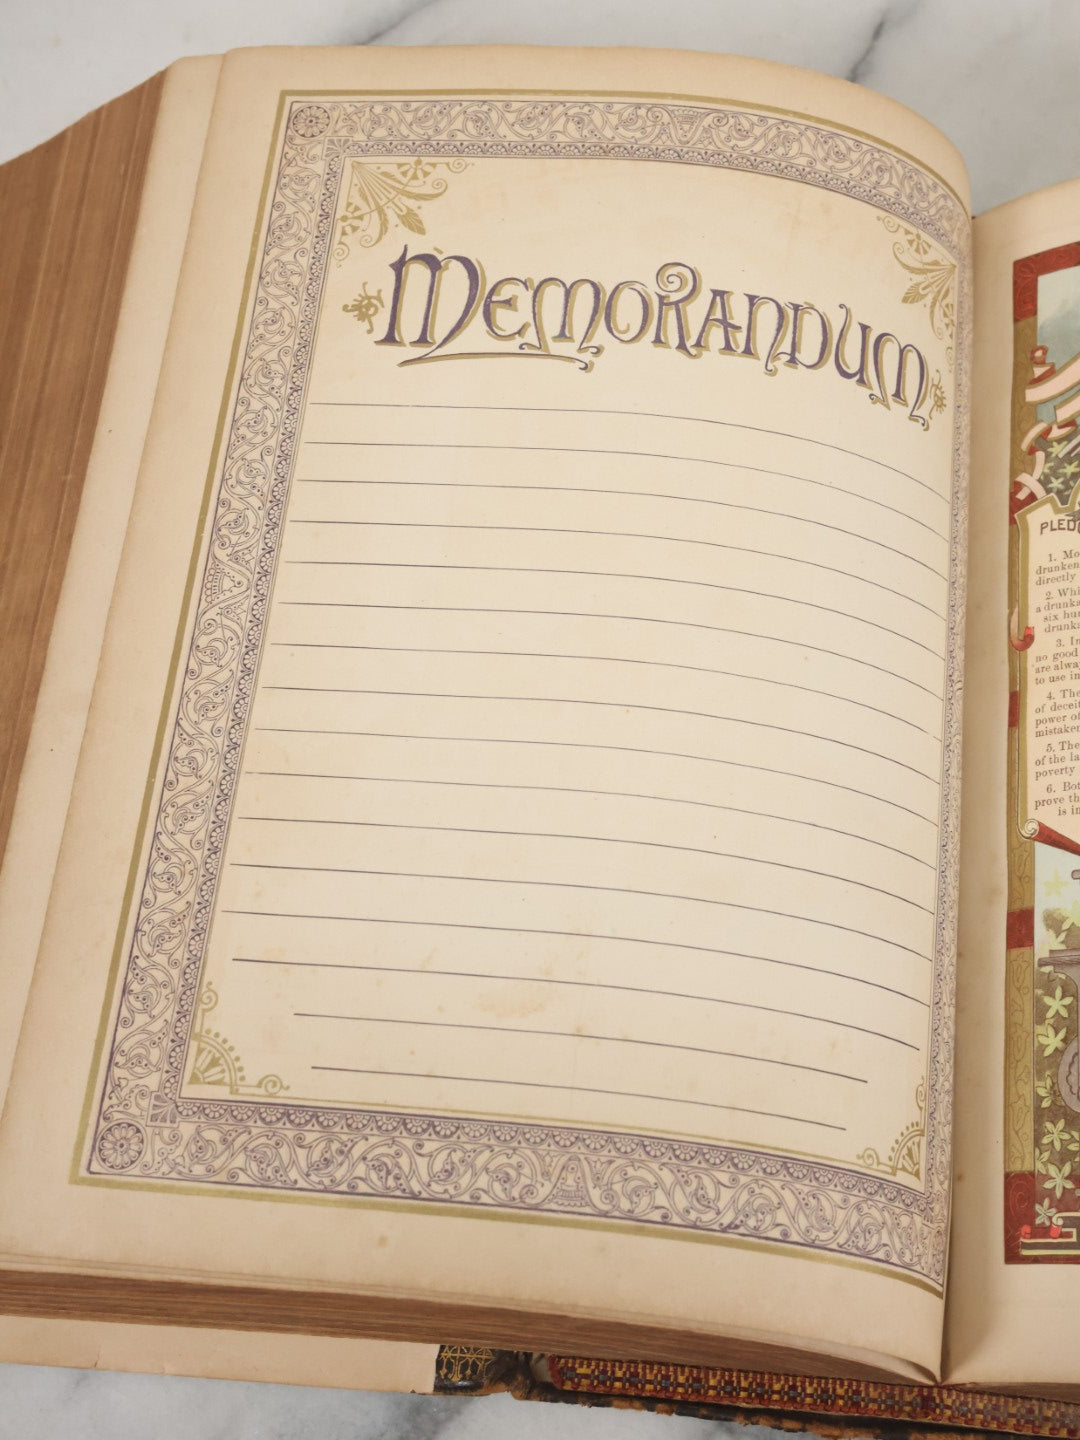 MEMORANDUM
PLEDG
1. Mo
drunken
directly
2. Whi
a drunka
six hun
drunka
3. In
no good
are alway
to use in
4. The
of deceit
power of
mistaken
5. The
of the la
poverty
6. Bot
prove th
is in